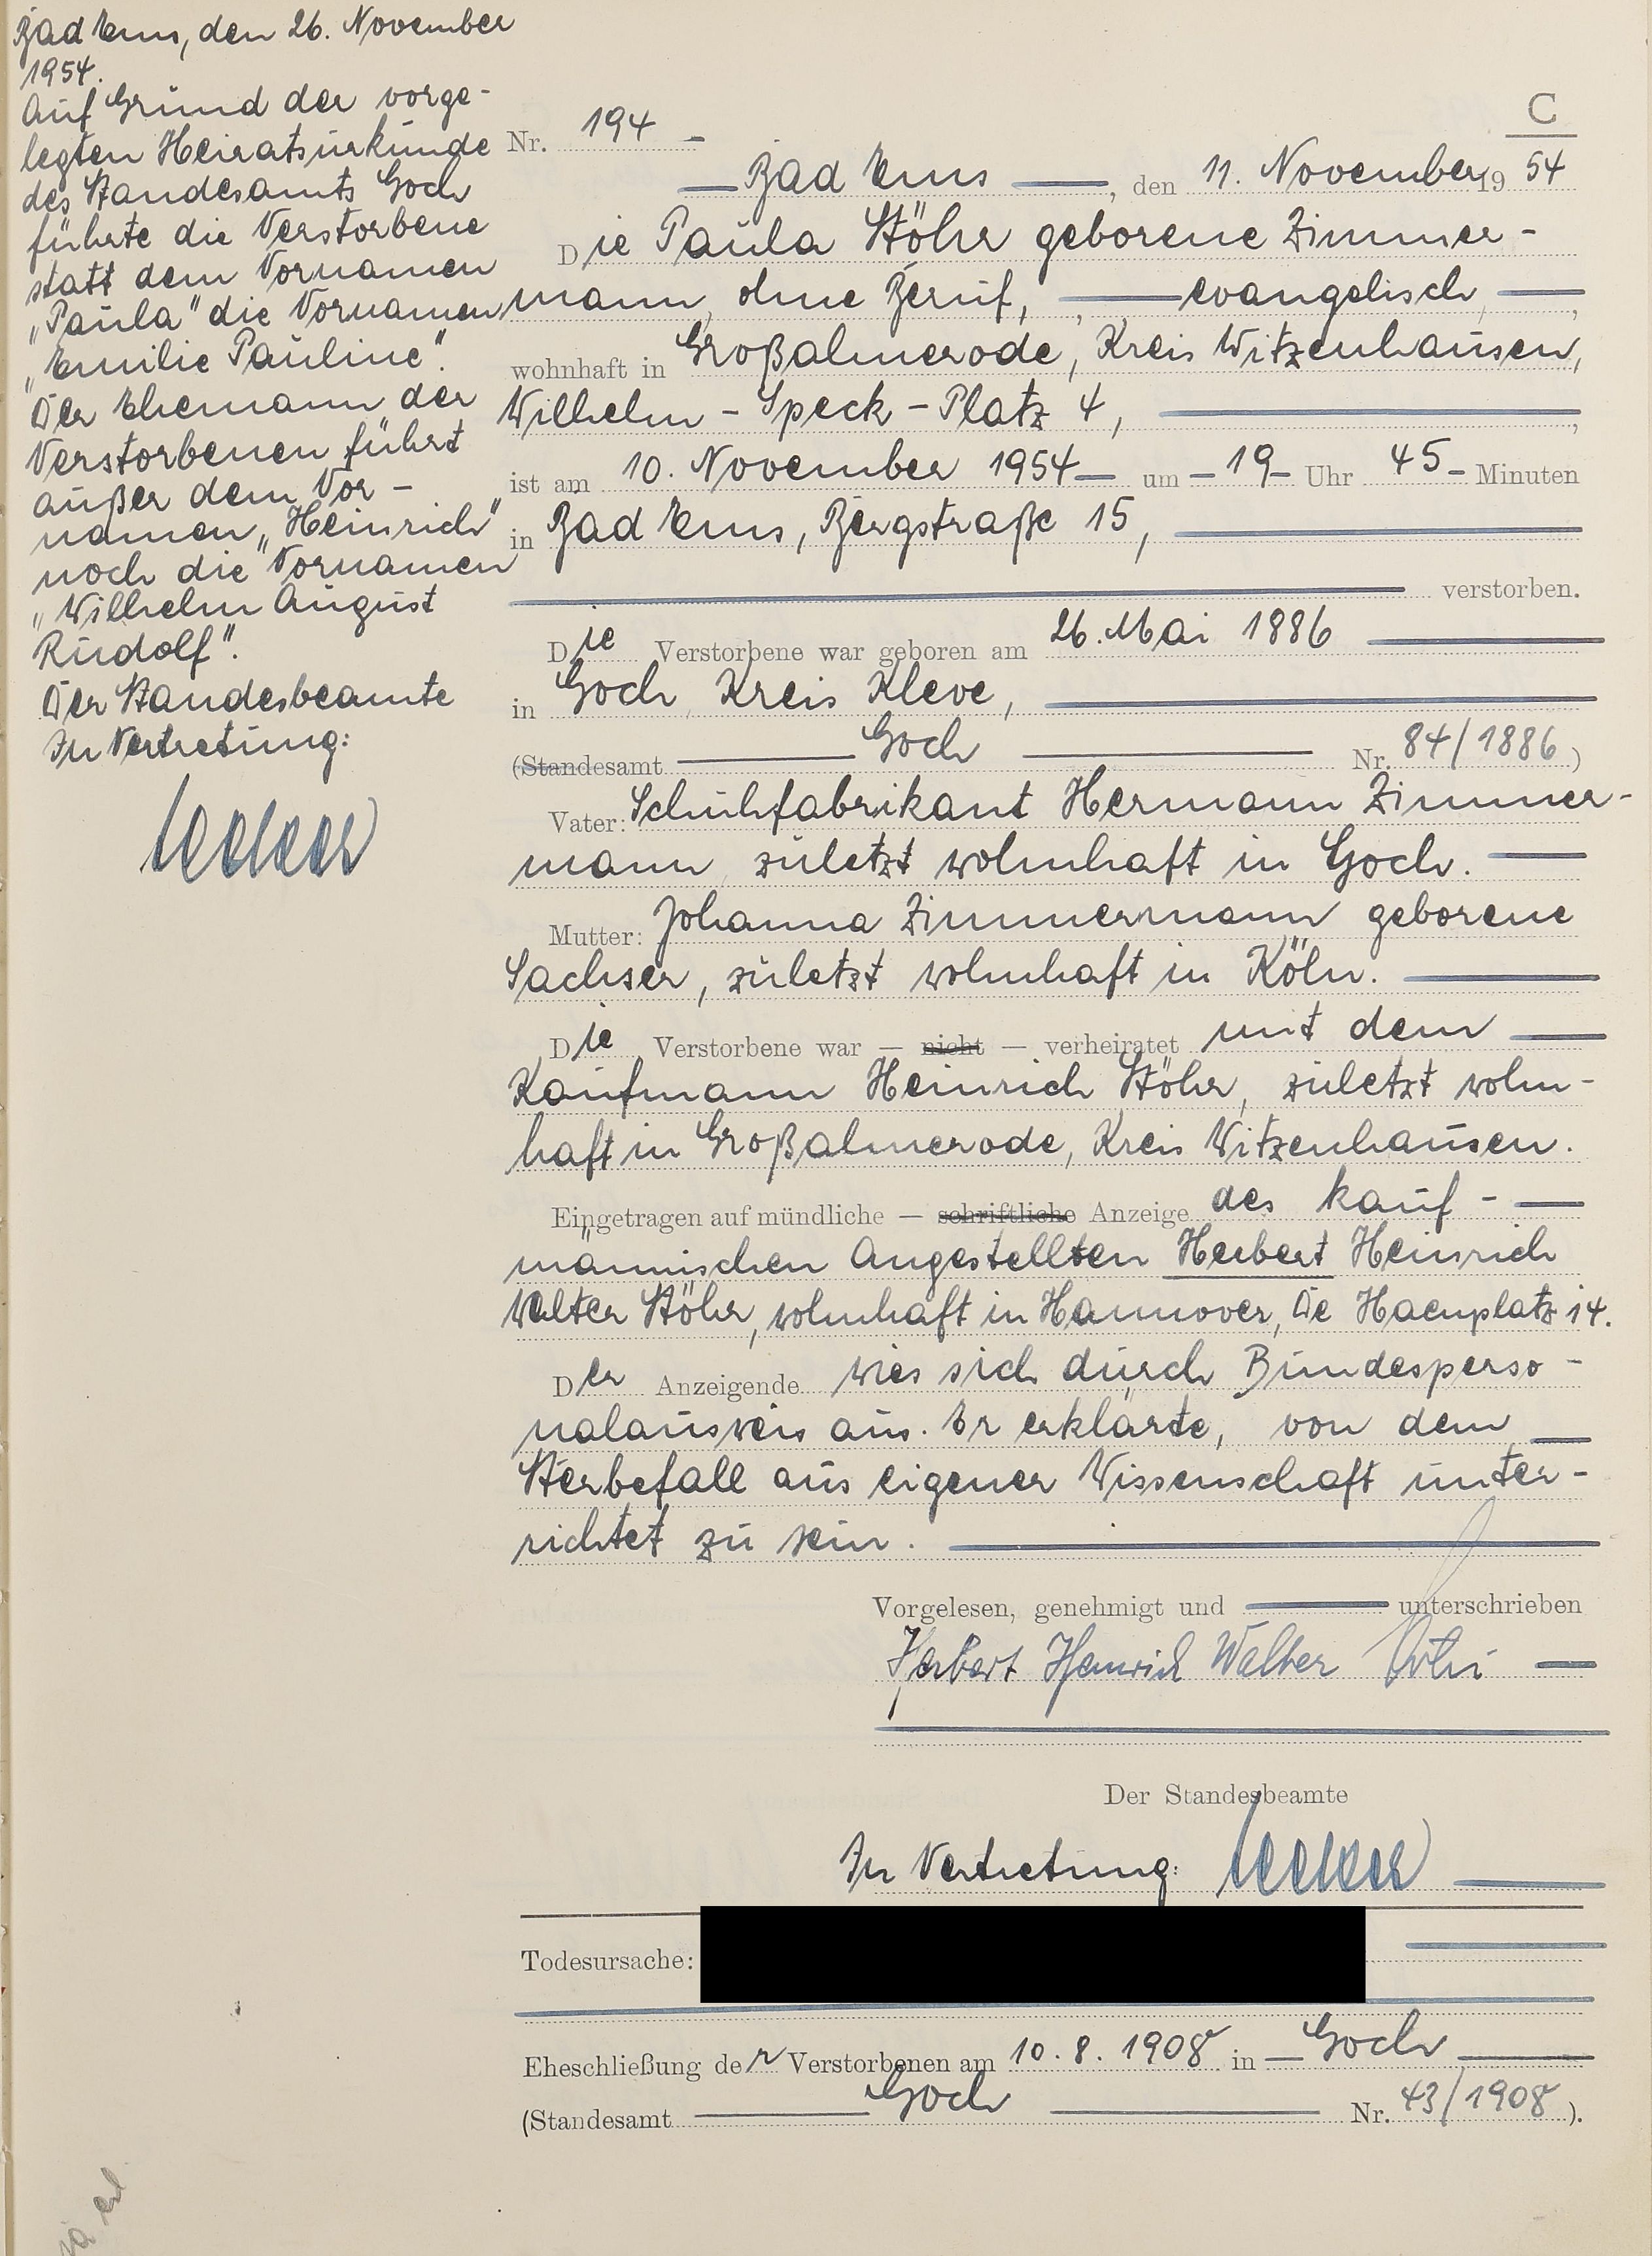 Bad Ems, den 26. November
1954.
Auf Grund der vorge-
legten Heiratsurkunde
des Standesamts Goch
führte die Verstorbene
statt dem Vornamen
„Paula" die Vornamen
„Emilie Pauline".
Der Ehemann der
Verstorbenen führt
außer dem Vor-
namen „Heinrich"
noch die Vornamen
„Wilhelm August
Rudolf".
Der Standesbeamte
In Vertretung:
C
Nr. 194
Bad Ems, den 11. November 1954
Die Paula Stöhr geborene Zimmer-
mann, ohne Beruf, evangelisch,
wohnhaft in Großalmerode, Kreis Witzenhausen,
Wilhelm-Speck-Platz 4,
ist am 10. November 1954 um 19 Uhr 45 Minuten
in Bad Ems, Bergstraße 15,
verstorben.
Die Verstorbene war geboren am 26. Mai 1886
in Goch, Kreis Kleve,
(Standesamt Goch Nr. 84/1886)
Vater: Schuhfabrikant Hermann Zimmer-
mann, zuletzt wohnhaft in Goch.
Mutter: Johanna Zimmermann geborene
Sachser, zuletzt wohnhaft in Köln.
Die Verstorbene war — nicht — verheiratet mit dem
Kaufmann Heinrich Stöhr, zuletzt wohn-
haft in Großalmerode, Kreis Witzenhausen.
Eingetragen auf mündliche — schriftliche Anzeige des kauf-
männischen Angestellten Herbert Heinrich
Walter Stöhr, wohnhaft in Hannover, De Haenplatz 14.
Der Anzeigende wies sich durch Bundesperso-
nalausweis aus. Er erklärte, von dem
Sterbefall aus eigener Wissenschaft unter-
richtet zu sein.
Vorgelesen, genehmigt und unterschrieben
Herbert Heinrich Walter Stöhr
Der Standesbeamte
In Vertretung:
Todesursache:
Eheschließung der Verstorbenen am 10. 8. 1908 in Goch
(Standesamt Goch Nr. 43/1908).